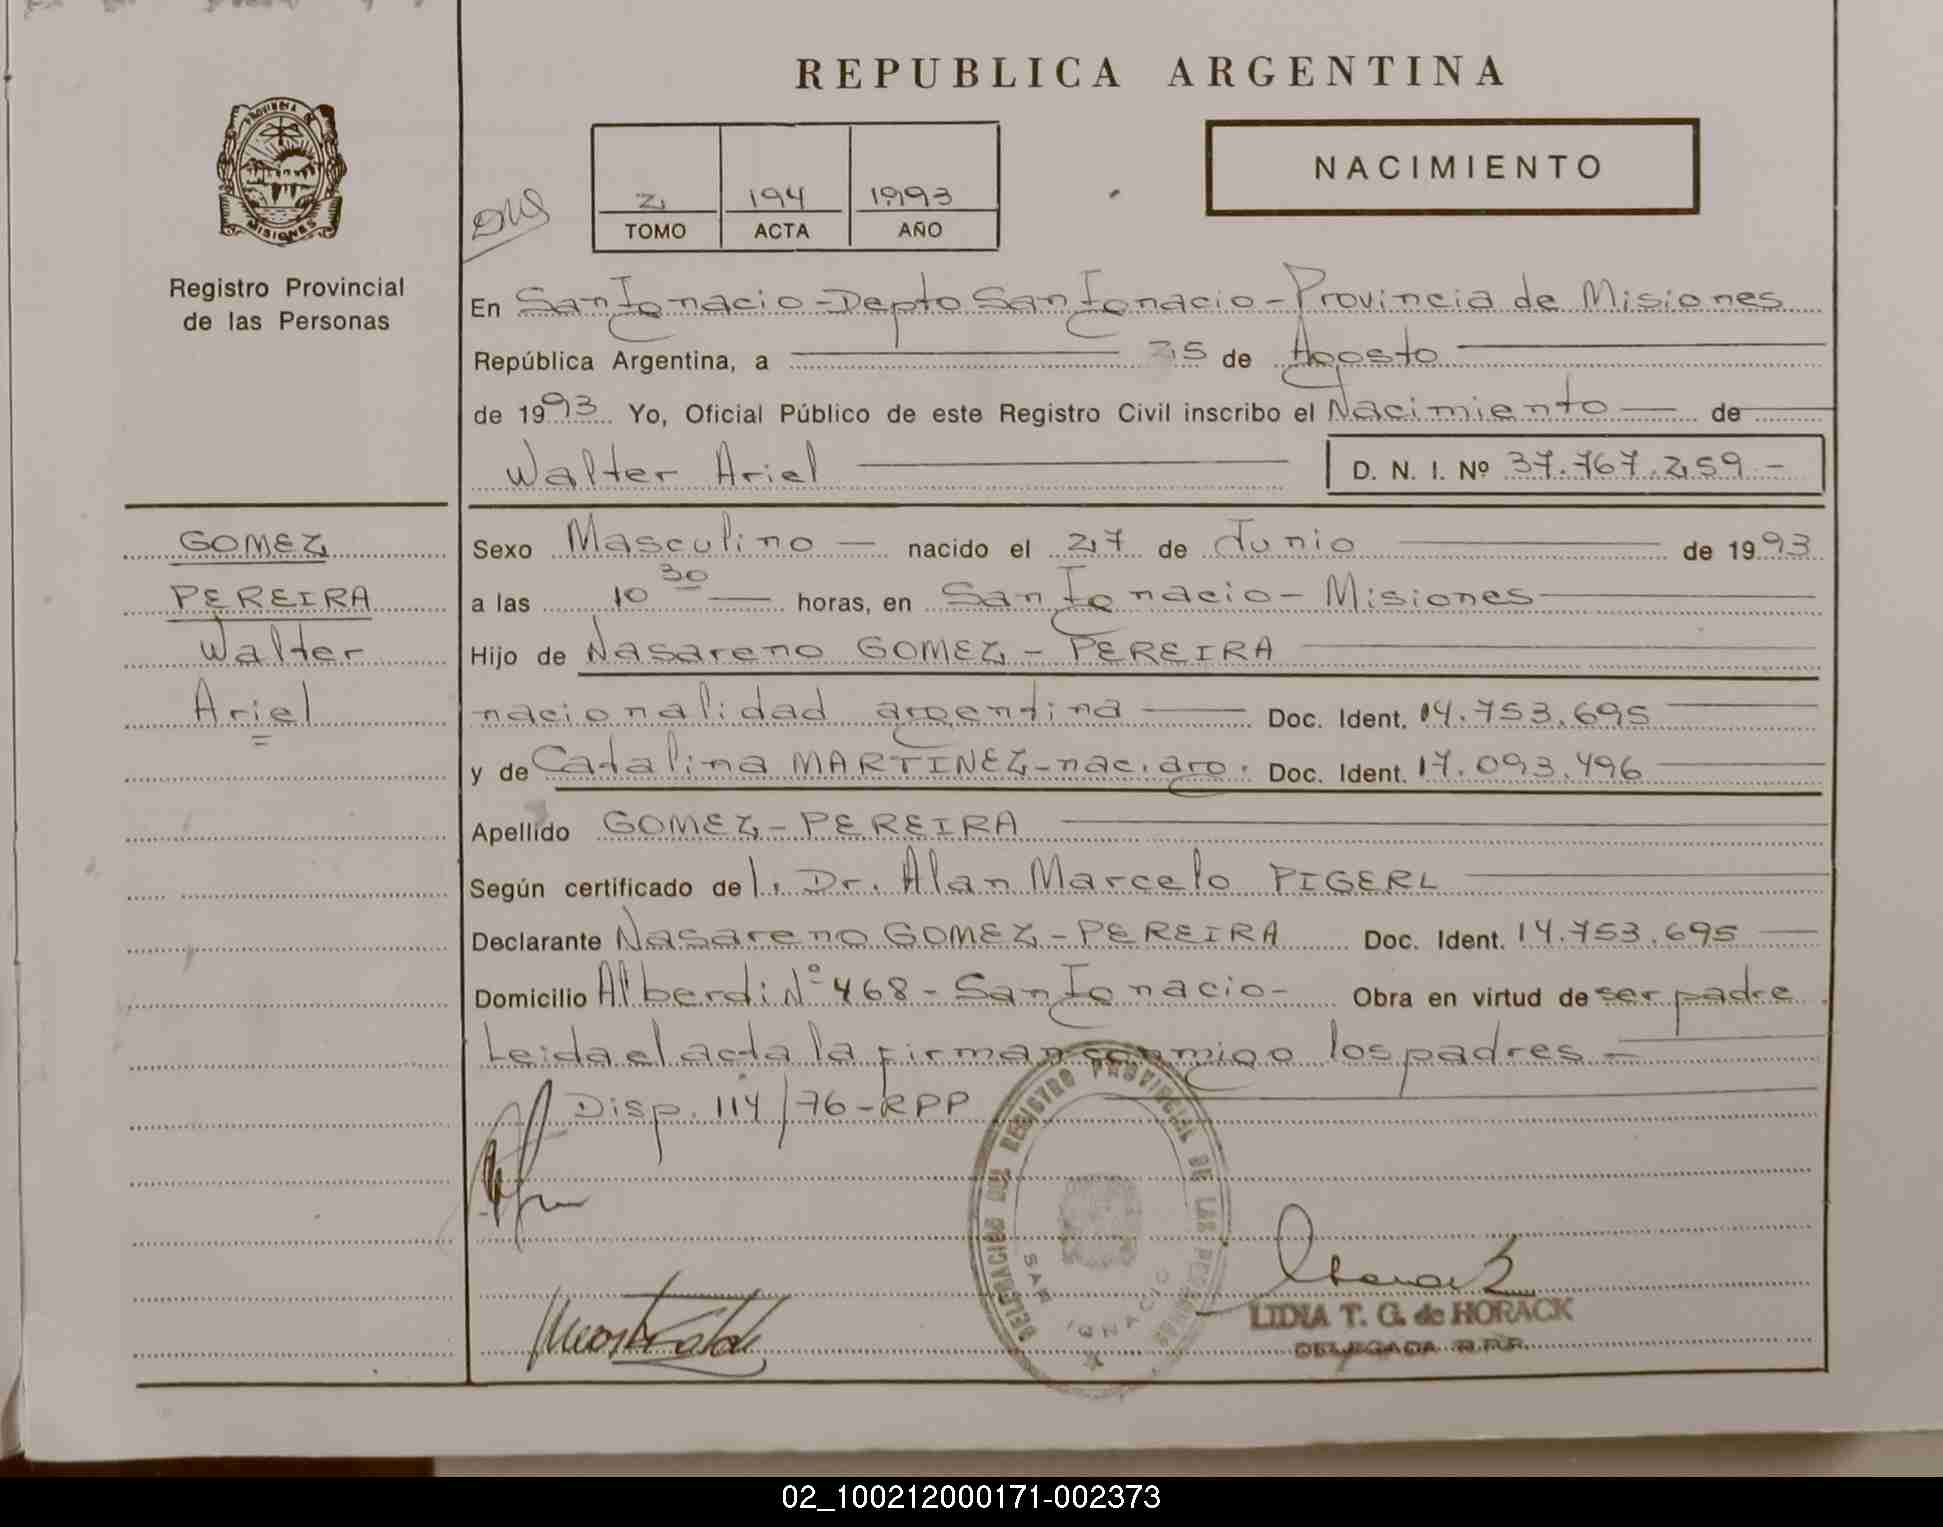 REPUBLICA ARGENTINA
NACIMIENTO
PROVINCIA DE
MISIONES
Registro Provincial
de las Personas
2 194 1993
TOMO ACTA AÑO
En San Ignacio - Depto San Ignacio - Provincia de Misiones
República Argentina, a 25 de Agosto
de 1993 Yo, Oficial Público de este Registro Civil inscribo el Nacimiento — de
Walter Ariel
D. N. I. Nº 37.767.259.-
GOMEZ
PEREIRA
Walter
Ariel
Sexo Masculino — nacido el 27 de Junio de 1993
a las 10 30 — horas, en San Ignacio - Misiones
Hijo de Nasareno GOMEZ - PEREIRA
nacionalidad argentina — Doc. Ident. 14.753.695
y de Catalina MARTINEZ - nac. arg. Doc. Ident. 17.093.496
Apellido GOMEZ - PEREIRA
Según certificado del. Dr. Alan Marcelo PIGERL
Declarante Nasareno GOMEZ - PEREIRA Doc. Ident. 14.753.695
Domicilio Alberdi Nº 468 - San Ignacio - Obra en virtud de ser padre
Leida el acta la firman conmigo los padres -
Disp. 114/76 - RPP
DELEGACION DEL REGISTRO PROVINCIAL DE LAS PERSONAS
SAN IGNACIO
LIDIA T. G. de HORACK
DELEGADA R.P.P.
02_100212000171-002373